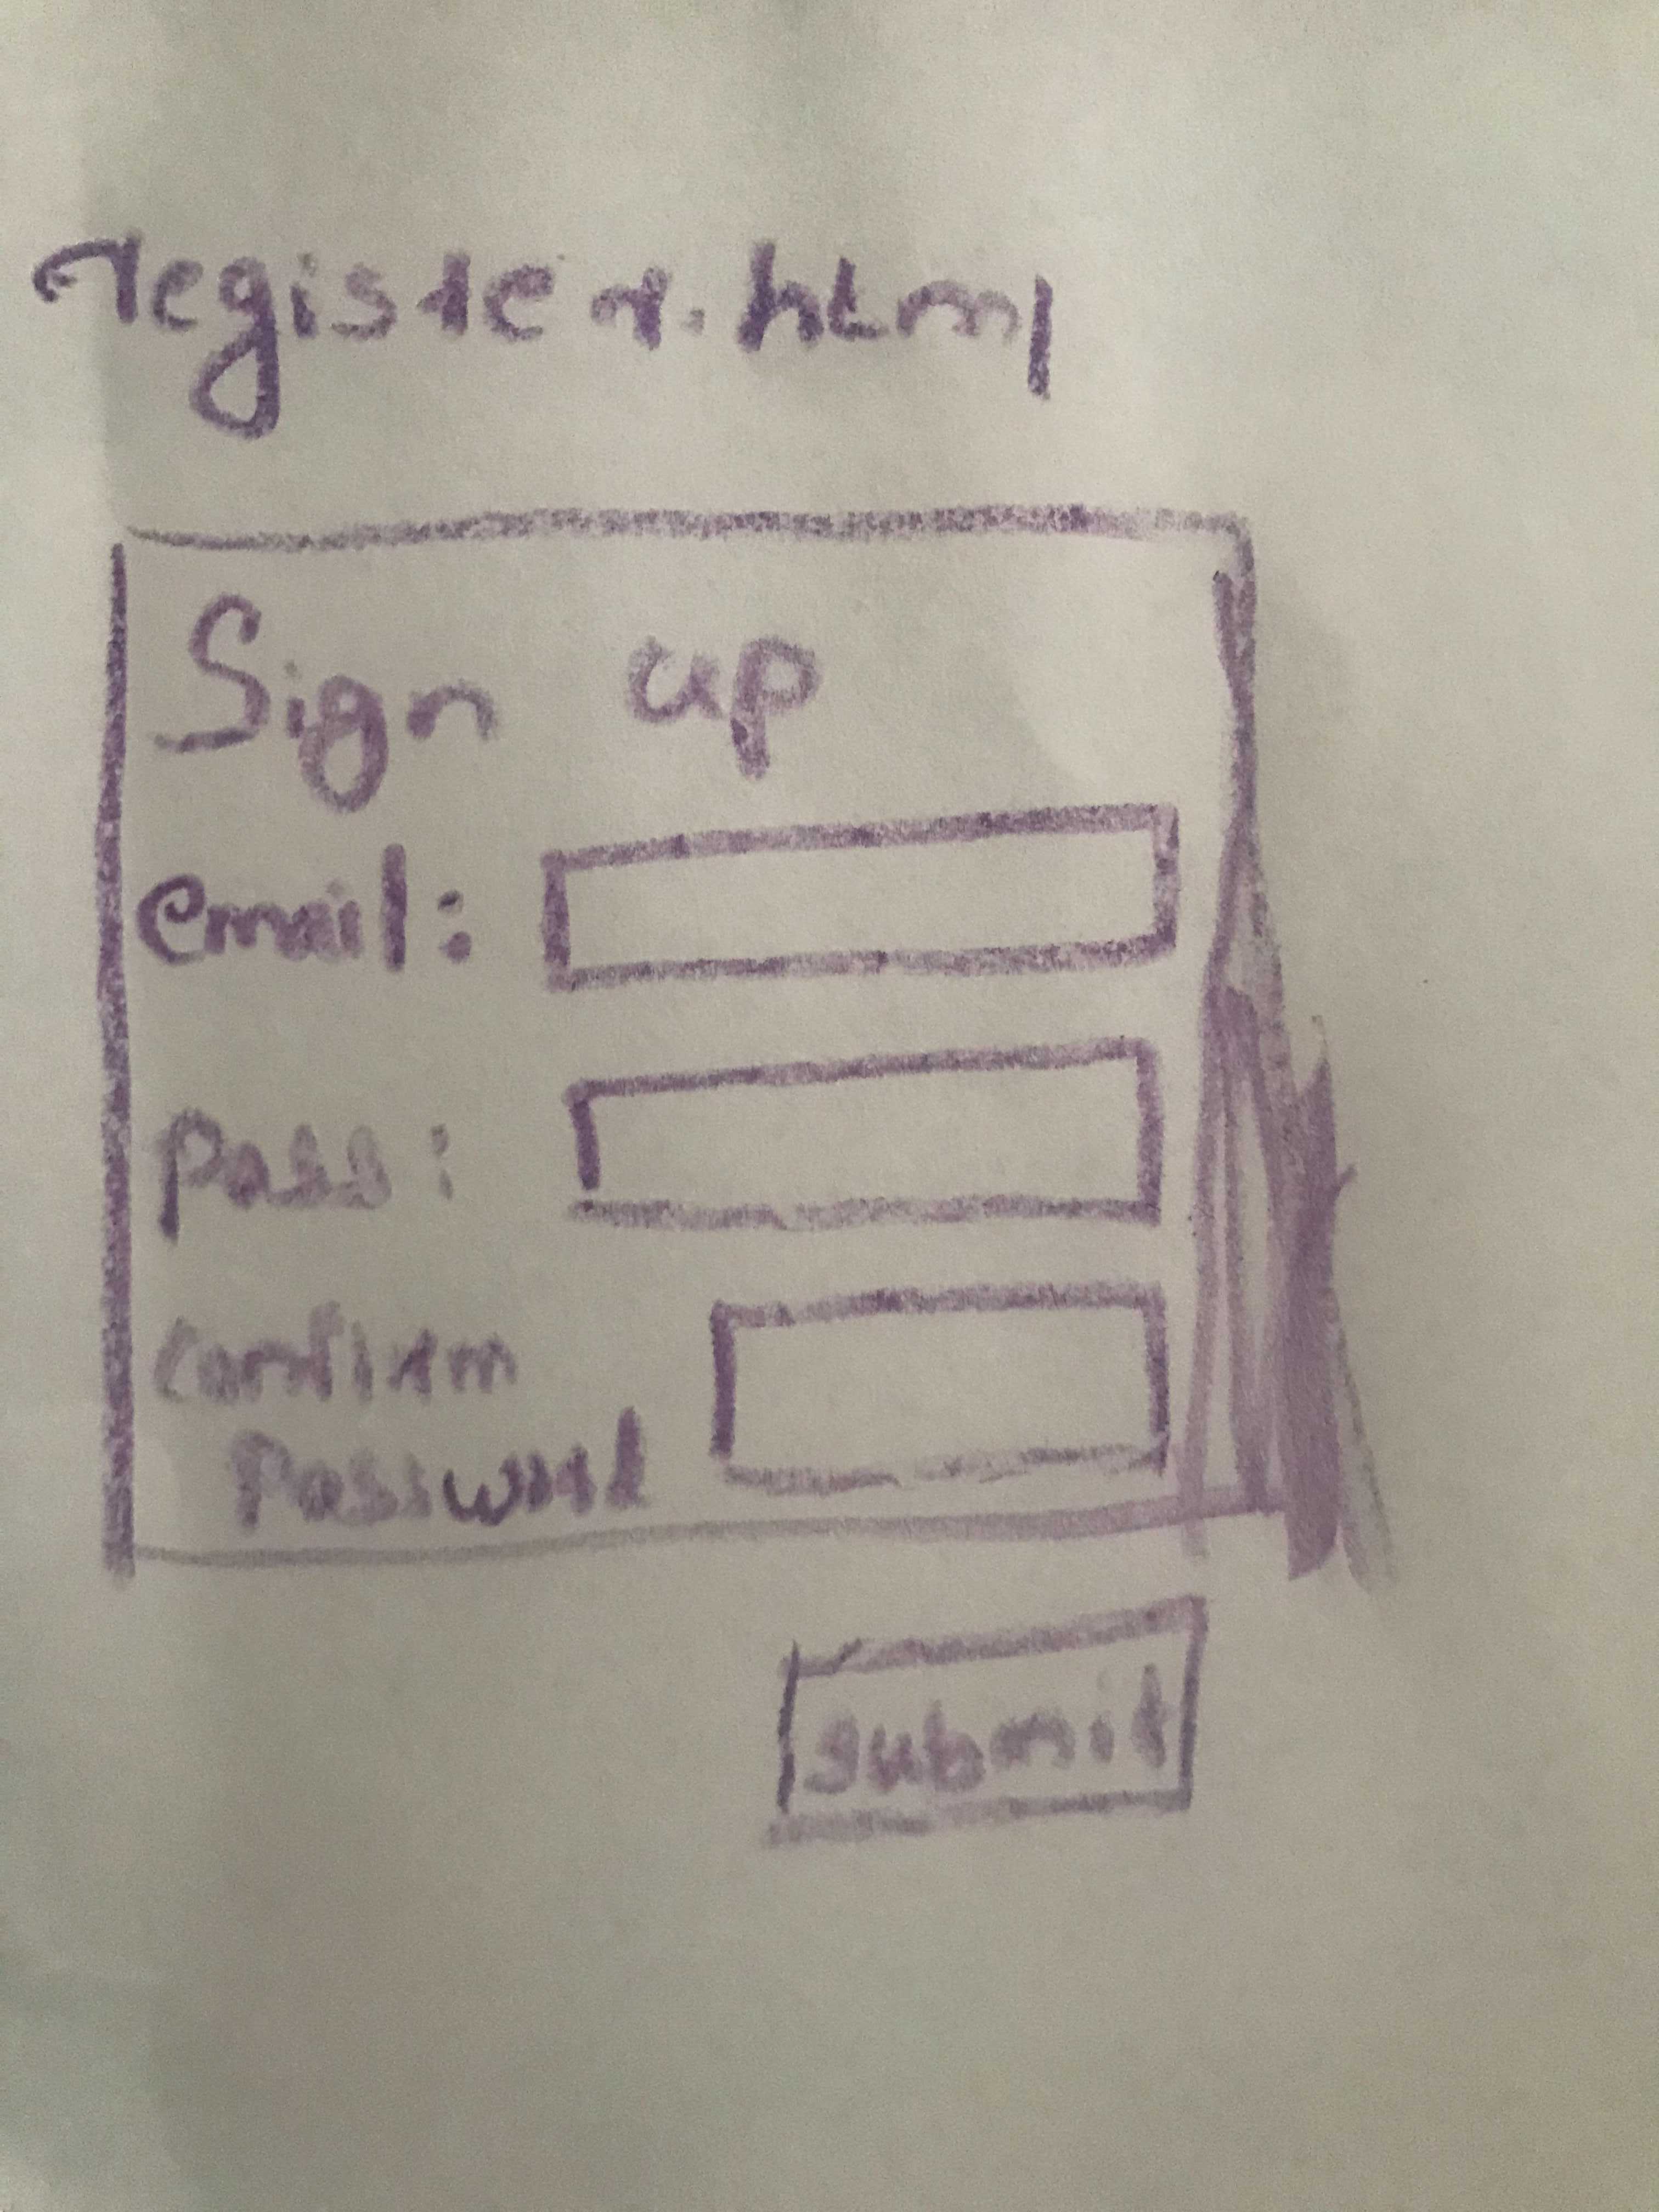 register.html
Sign up
email:
pass:
confirm
password
submit